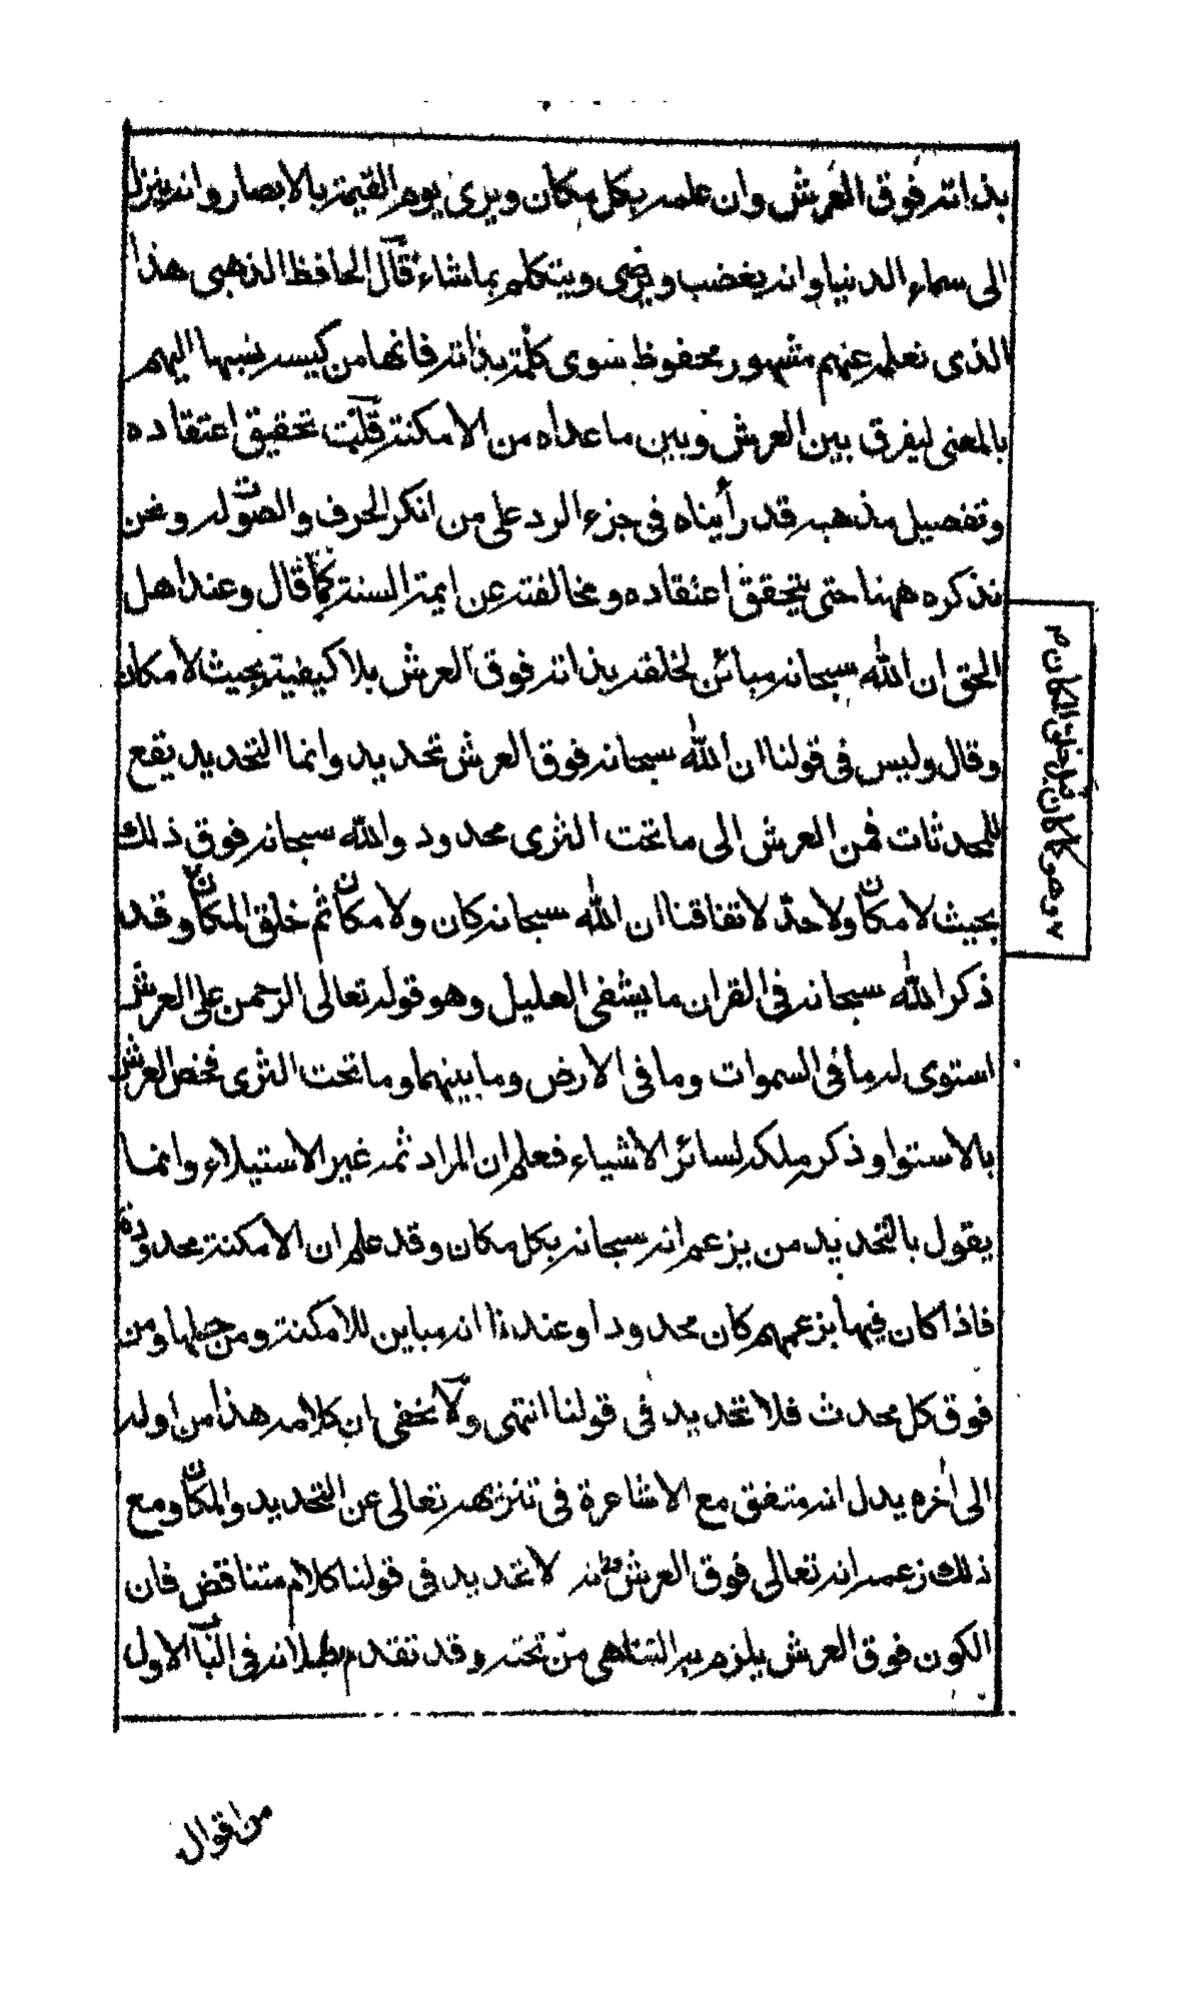 بذاته فوق العرش وان علمه بكل مكان ويرى يوم القيمة بالابصار وانه ينزل
الى سماء الدنيا وانه يغضب ويرضى ويتكلم بما شاء قال الحافظ الذهبى هذا
الذى نعلمه عنهم مشهور محفوظ سوى كلمة بذاته فانها من كيسه نسبها اليهم
بالمعنى ليفرق بين العرش وبين ما عداه من الامكنة قلت تحقيق اعتقاده
وتفصيل مذهبه قد رأيناه فى جزء الرد على من انكر الحرف والصوت له ونحن
نذكره ههنا حتى يتحقق اعتقاده ومخالفته عن ايمة السنة كما قال وعند اهل
الحق ان الله سبحانه مبائن لخلقه بذاته فوق العرش بلا كيفية بحيث لا مكان
وقال وليس فى قولنا ان الله سبحانه فوق العرش تحديد وانما التحديد يقع
للمحدثات فمن العرش الى ما تحت الثرى محدود والله سبحانه فوق ذلك
بحيث لا مكان ولا حد لاتفاقنا ان الله سبحانه كان ولا مكان ثم خلق المكان وقد
ذكر الله سبحانه فى القران ما يشفى العليل وهو قوله تعالى الرحمن على العرش
استوى له ما فى السموات وما فى الارض وما بينهما وما تحت الثرى فخص العرش
بالاستوا وذكر ملكه لسائر الاشياء فعلم ان المراد ثمه غير الاستيلاء وانما
يقول بالتحديد من يزعم انه سبحانه بكل مكان وقد علم ان الامكنة محدودة
فاذا كان فيها بزعمهم كان محدودا وعندنا انه مباين للامكنة ومن حلها ومن
فوق كل محدث فلا تحديد فى قولنا انتهى ولا يخفى ان كلامه هذا من اوله
الى اخره يدل انه متفق مع الاشاعرة فى تنزيهه تعالى عن التحديد والمكان ومع
ذلك زعمه انه تعالى فوق العرش وانه لا تحديد فى قولنا كلام متناقض فان
الكون فوق العرش يلزم به التناهى من تحته وقد تقدم بطلانه فى الباب الاول
من اقوال
كما كان قبل خلق المكان